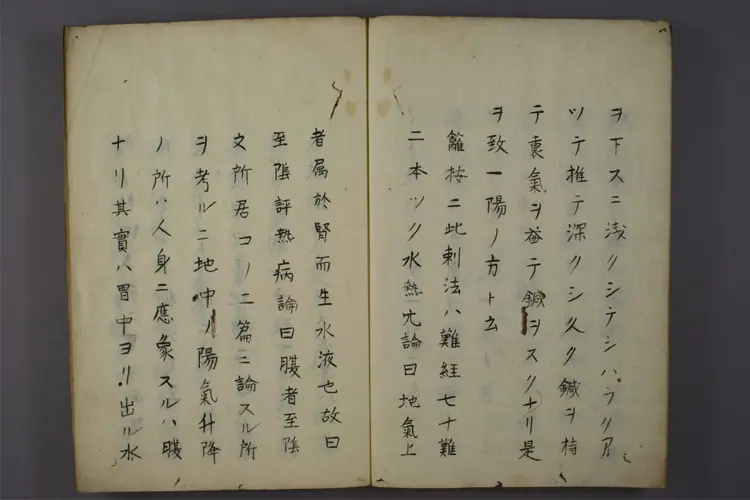 ヲ下スニ浅クシテシハラク居
ツテ推テ深クシ久ク鍼ヲ持
テ裏氣ヲ益テ鍼ヲスクナリ是
ヲ致一陽ノ方ト云
龤按ニ此刺法ハ難経七十難
ニ本ツク水熱穴論曰地氣上
者属於腎而生水液也故曰
至陰評熱病論曰腹者至陰
之所居コノ二篇ニ論スル所
ヲ考ルニ地中ノ陽氣升降
ノ所ハ人身ニ應象スルハ腹
ナリ其實ハ胃中ヨリ出ル水